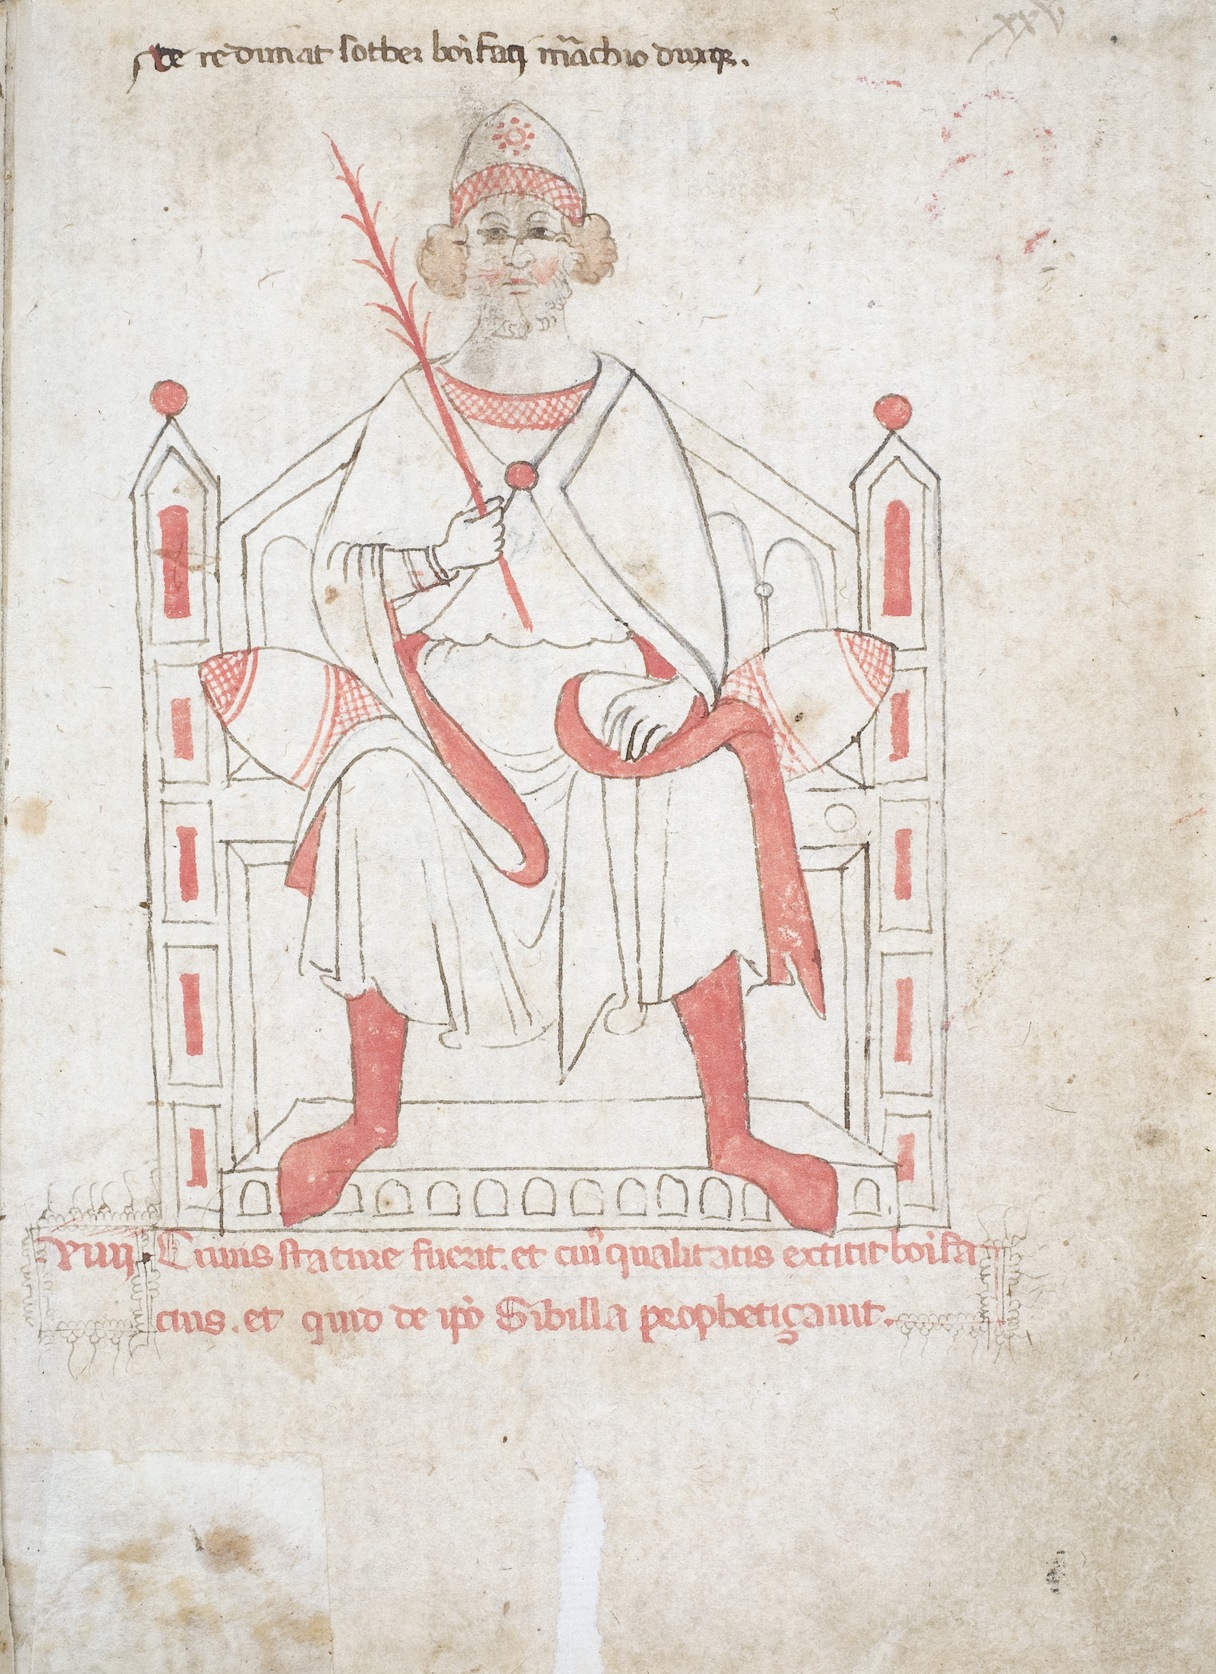 xxv.
Te redimat sother boīfaci m̄achio duxqꝫ.
Viiij. Cuius stature fuerit. et cuiꝰ qualitatis extitit boīfa
cius. et quid de ip̄o Sibilla prophetiçauit.